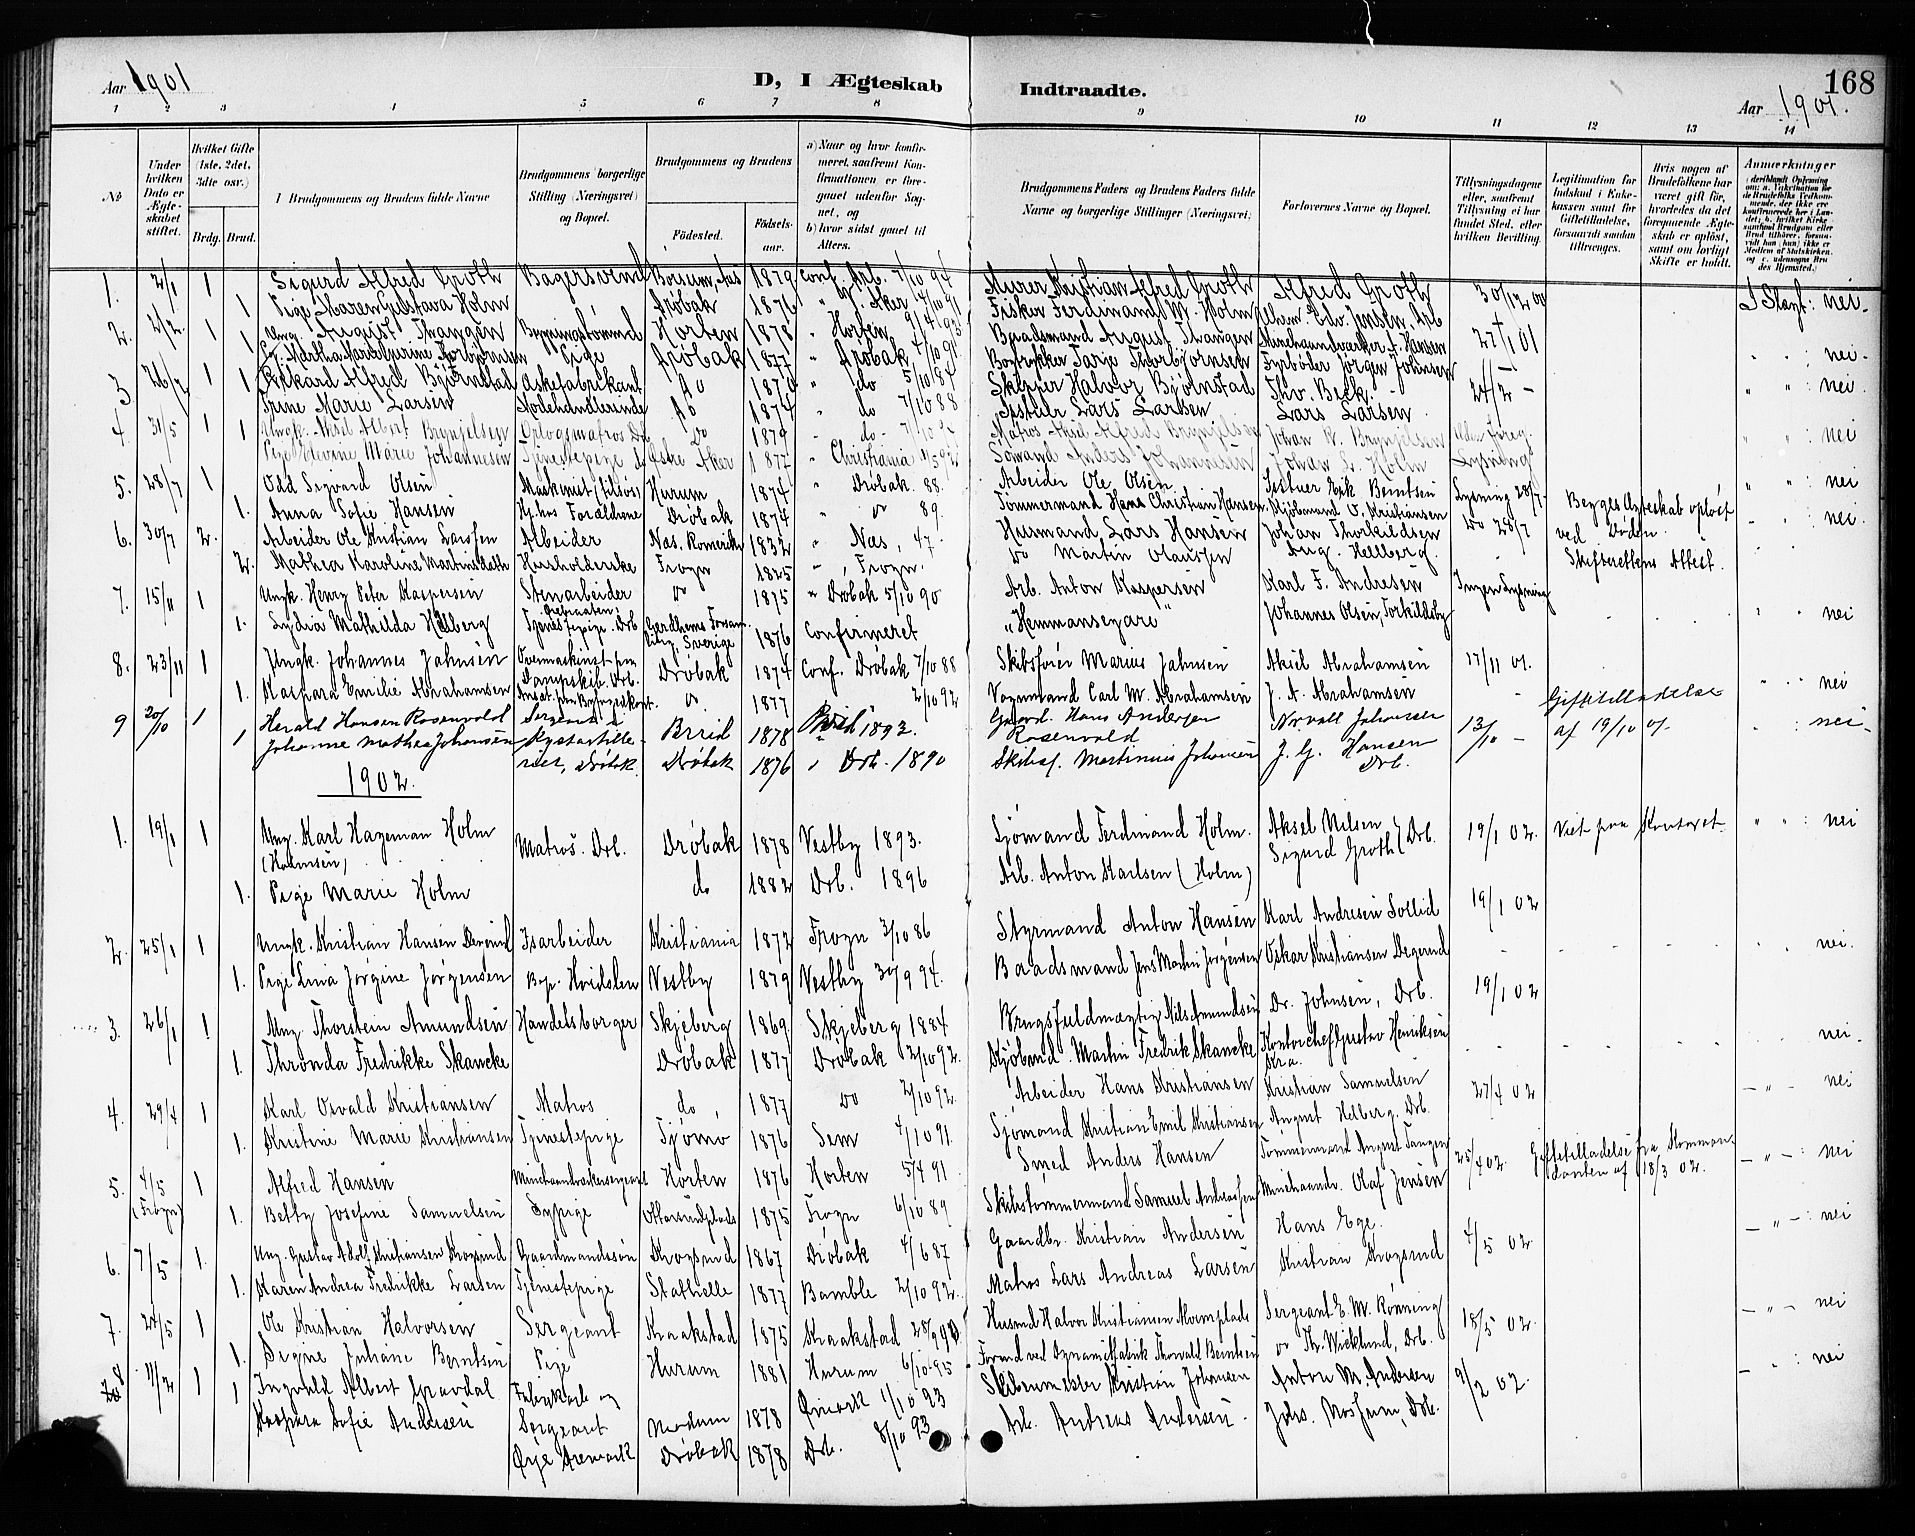 Aar 1901
D, I Ægteskab
Indtraadte.
168
Aar 1901.
1 2 3 4 5 6 7 8 9 10 11 12 13 14
No
Under hvilken Dato er Ægteskabet stiftet.
Hvilket Gifte (1ste, 2det, 3dte osv.)
Brdg. Brud.
Brudgommens og Brudens fulde Navne
Brudgommens borgerlige Stilling (Næringsvei) og Bopæl.
Brudgommens og Brudens
Fødested. Fødselsaar.
a) Naar og hvor konfirmeret, saafremt Konfirmationen er foregaaet udenfor Sognet, og
b) hvor sidst gaaet til Alters.
Brudgommens Faders og Brudens Faders fulde Navne og borgerlige Stillinger (Næringsvei)
Forlovernes Navne og Bopæl.
Tillysningsdagene eller, saafremt Tillysning ei har fundet Sted, efter hvilken Bevilling.
Legitimation for Indskud i Enkekassen samt for Giftetilladelse, forsaavidt saadan tiltrænges.
Hvis nogen af Brudefolkene har været gift før, hvorledes da det foregaaende Ægteskab er opløst, samt om lovligt Skifte er holdt.
Anmærkninger
1. 2/1 1 Sigurd Alfred Groth Bagersvend 1879 Conf. Drb. 7/10 94 Murer Kristian Alfred Groth Alfred Groth 30/12 00 I Slægt: nei.
1 Pige Maren Gustava Holm Drøbak 1876 Fisker Ferdinand M. Holm Edv. Jensen, Drb
2. 2/2 1 Ung. August Thangen Horten 1878 " Horten Baadsmand August Thangen A. Hansen 27/1 01 nei.
1 Drøbak 1877 " Drøbak Tarje Thorbjørnsen Fyrbøder Jørgen Johnsen
3 26/2 1 Rikard Alfred Bjørnstad Æskefabrikant do 1870 " do 5/10 84 Skipper Halvor Bjørnstad Thv. Beck 24/2 nei.
1 Trine Marie Larsen Modehandlerinde do 1874 " do 7/10 88 Lars Larsen Lars Larsen
4. 31/5 1 Ungk. Aksel Albert Brynjelsen Orlogsmatros Drb do 1879 " do Matros Aksel Alfred Brynjelsen Johan A. Brynjelsen Uden foreg. nei
1 Pige Elevine Marie Johannesen Tjenestepige Østre Aker 1877 " Christiania Sømand Anders Johannesen Johan L. Holm Lysning
5. 28/7 1 Odd Sigvard Olsen Maskinist (tilsøs) Hurum 1874 " Drøbak 88. Arbeider Ole Olsen Erik Berntsen Lysning 28/7 nei
1. Anna Sofie Hansen Hj. hos Forældrene Drøbak 1874 " do 89. Tømmermand Hans Christian Hansen Kjøbmand O. Kristiansen
6. 30/7 2. Arbeider Ole Kristian Larssen Arbeider Næs. Romerike 1832 " Næs, 47. Husmand Lars Hansen Johan Thorkildsen do 28/7 Begges Ægteskab opløst ved Døden. nei.
2. Mathea Karoline Martinsdatt Husholderske Frogn 1825 " Frogn. do Martin Olaussen Aug. Hellberg. Skifterettens Attest.
7. 15/11 1 Ungk. Henry Peter Kaspersen Stenarbeider do 1875 " Drøbak 5/10 90 Arb. Anton Kaspersen Karl F. Andresen Ingen Lysning nei
1. Lydia Mathilda Hellberg Tjenestepige. Drb Sverige 1876 Confirmeret "Hemmansegare" Johannes Olsen, Torkildsby
8. 23/11 1 Ungk. Johannes Johnsen Overmaskinist paa Dampskib. Drb. Drøbak 1874 Conf. Drøbak 7/10 88 Skibsfører Marius Johnsen Aksel Abrahamsen 17/11 01. nei
1. Kaspara Emilie Abrahamsen do. 1877 2/10 92 Vognmand Carl M. Abrahamsen J. A. Abrahamsen
9 20/10 1 Herald Hansen Rosenvold Sergeant v. Kystartilleriet, Drøbak. 1878 1893. Gaard. Hans Andersen Rosenvold Johansen 13/10 Giftetilladelse af 19/10 01. nei
1 Johanne Mathea Johansen Drøbak 1876 " Drb. 1890 Skibsf. Martinius Johansen J. G. Hansen Drb.
1902.
1. 19/1 1 Ung. Karl Hageman Holm (Halmsen) Matros. Drb. Drøbak 1878 Vestby 1893. Sjømand Ferdinand Holm. Aksel Nilsen Sigurd Groth } Drb. 19/1 02. Viet paa Kontoret. nei
1. Pige Marie Holm do 1882 Drb. 1896 Arb. Anton Karlsen (Holm)
2. 25/1 1 Ungk. Kristian Hansen Degerud Isarbeider Kristiania 1872 Frogn 3/10 86 Styrmand Anton Hansen Karl Andresen Sollid 19/1 02 nei.
1. Pige Lina Jørgine Jørgensen Bop. Hvidsten Vestby 1879 Vestby 30/9 94. Baadsmand Jens Martin Jørgensen Oskar Kristiansen Degerud
3. 26/1 1 Ung. Thorstein Amundsen Handelsborger Skjeberg 1869. Skjeberg 1884 Brugsfuldmægtig Nils Amundsen Dr. Johnsen, Drb. 19/1 02 nei.
1. Thronda Fredrikke Skancke Drøbak 1877 Drøbak 2/10 92. Kjøbmd. Martin Fredrik Skancke Kontorchef Gustav Henriksen Kra.
4. 29/4 1 Karl Osvald Kristiansen Matros do, 1877 do 2/10 92. Arbeider Hans Kristiansen Kristian Samuelsen 27/4 02 nei
1. Kristine Marie Kristiansen Tjenestepige Tjømø 1876 Sem 4/10 91. Sjømand Kristian Emil Kristiansen August Helberg, Drb.
5. 4/5 (Frogn) 1 Alfred Hansen Minehaandværkersergeant Horten 1876 Horten 5/4 91 Smed Anders Hansen Tømmermand August Tangen 25/4 02 Giftetilladelse fra Kommandanten af 18/3 02. nei
1. Betty Josefine Samuelsen Sypige 1875 Frogn 6/10 89 Skibstømmermand Samuel Andreassen Minehaandv. Olaf Jensen
6. 7/5 1. Ung. Gustav Adolf Kristiansen Krogsrud Gaardmandssøn Krogsrud 1867 Drøbak 4/6 87 Gaardbr. Kristian Andersen Hans Ege. 4/5 02 nei
1. Karen Andrea Fredrikke Larsen Tjenestepige Stathelle 1877 Bamble 2/10 92. Matros Lars Andreas Larsen Kristian Krogsrud
7. 24/5 1 Ole Kristian Halvorsen Sergeant Kraakstad 1875 Kraakstad Husmd Halvor Kristiansen Sergeant E. M. Rønning 18/5 02. nei
1. Signe Juliane Berntsen Pige Hurum 1881 Hurum 6/10 95 Formd ved Dynamitfabrik Thorvald Berntsen do Th. Wicklund, Drb.
8 11/2 1 Ingvald Albert Gravdal Fabrikarb og Sergeant Modum 1878 1/10 93 Skibsmester Kristian Johansen Anton M. Andersen 9/2 02. nei
1 Kaspara Sofie Andersen Drøbak 1878 Drb. 8/10 93 Arb. Andreas Andersen. Johs. Mosheim, Drb.